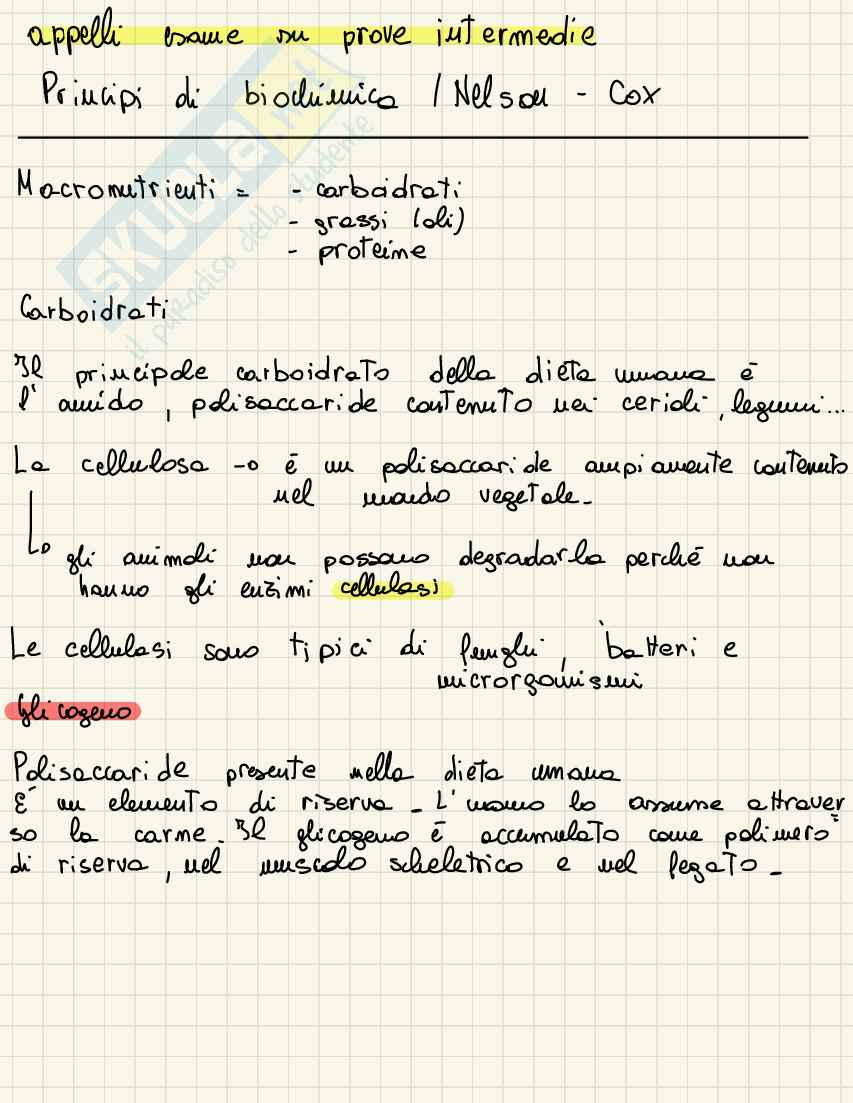 appelli esame su prove intermedie
Principi di biochimica / Nelson - Cox
SKUOLA.net
il paradiso dello studente
Macronutrienti = - carboidrati
- grassi (oli)
- proteine
Carboidrati
Il principale carboidrato della dieta umana è
l'amido, polisaccaride contenuto nei cerioli, legumi...
La cellulosa → è un polisaccaride ampiamente contenuto
nel mondo vegetale.
↳ gli animali non possono degradarla perché non
hanno gli enzimi cellulasi
Le cellulasi sono tipici di funghi, batteri e
microrganismi
Glicogeno
Polisaccaride presente nella dieta umana
E' un elemento di riserva. L'uomo lo assume attraver
so la carne. Il glicogeno è accumulato come polimero
di riserva, nel muscolo scheletrico e nel fegato.